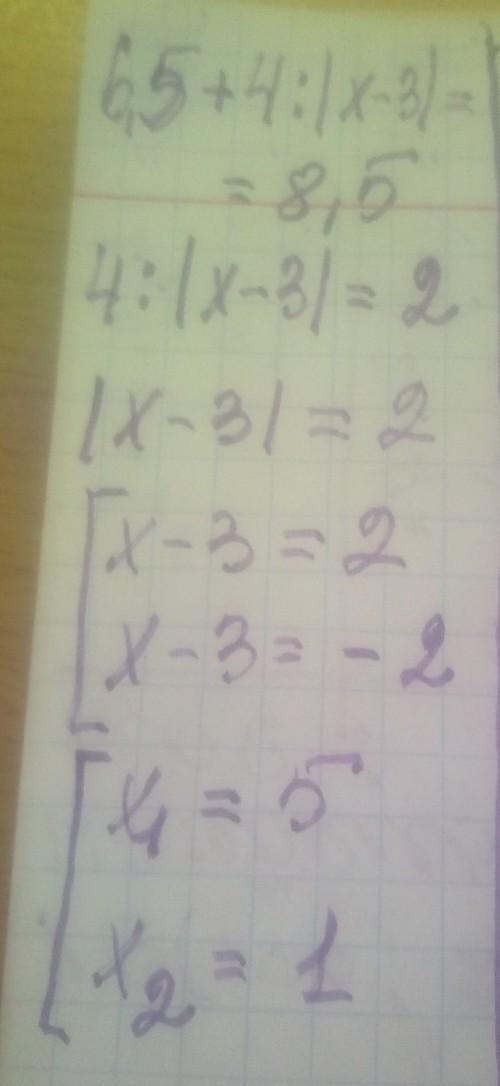 6,5+4:|x-3|=
=8,5
4:|x-3|=2
|x-3|=2
x-3=2
x-3=-2
x1=5
x2=1